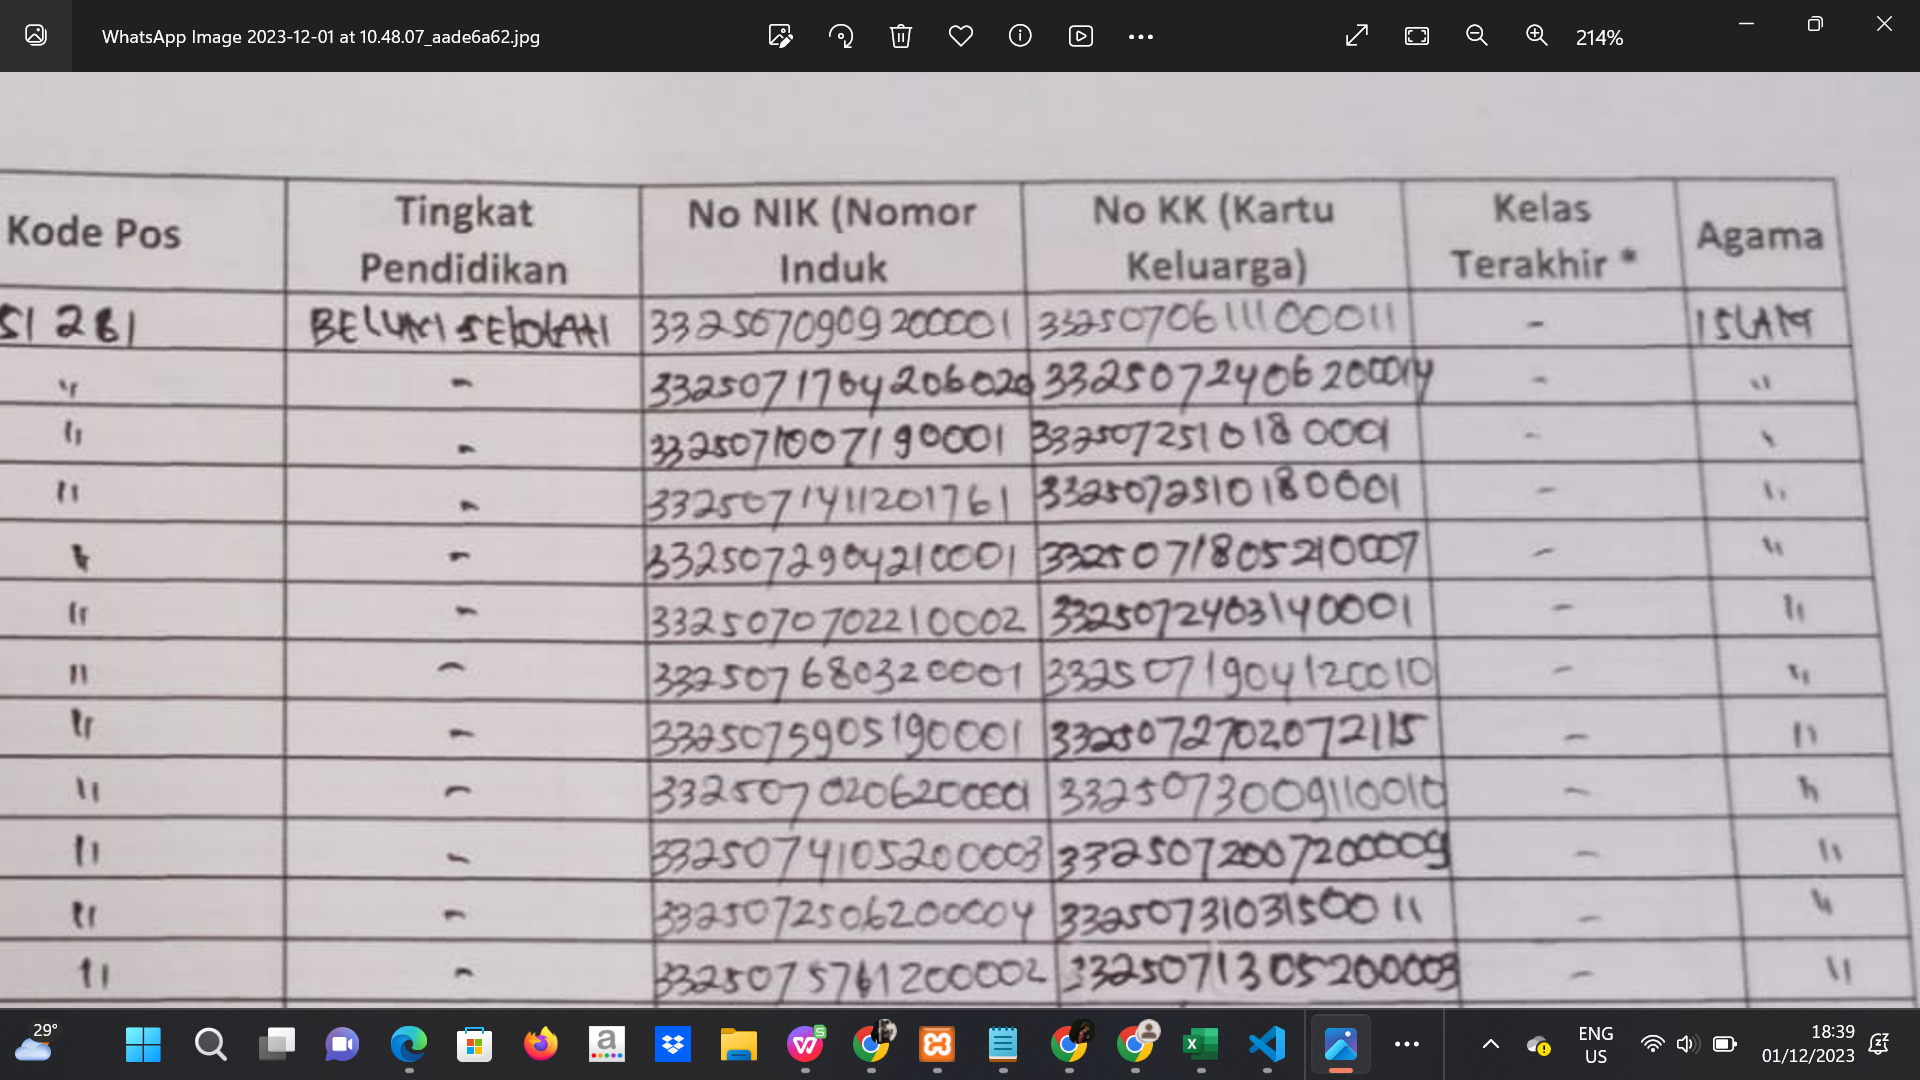 WhatsApp Image 2023-12-01 at 10.48.07_aade6a62.jpg
214%
Kode Pos Tingkat Pendidikan No NIK (Nomor Induk No KK (Kartu Keluarga) Kelas Terakhir * Agama
51281 BELUM SEKOLAH 3325070909200001 3325070611100011 - ISLAM
" - 3325071704206020 3325072406200014 - "
" - 3325071007190001 3325072510180001 - "
" - 3325071411201761 3325072510180001 - "
" - 3325072904210001 3325071805210007 - "
" - 3325070702210002 3325072403140001 - "
" - 332507680320001 3325071904120010 - "
" - 3325075905190001 3325072702072115 - "
" - 3325070206200001 3325073009110010 - "
" - 3325074105200003 3325072007200009 - "
" - 3325072506200004 3325073103150011 - "
" - 3325075761200002 3325071305200003 - "
29°
ENG
US
18:39
01/12/2023